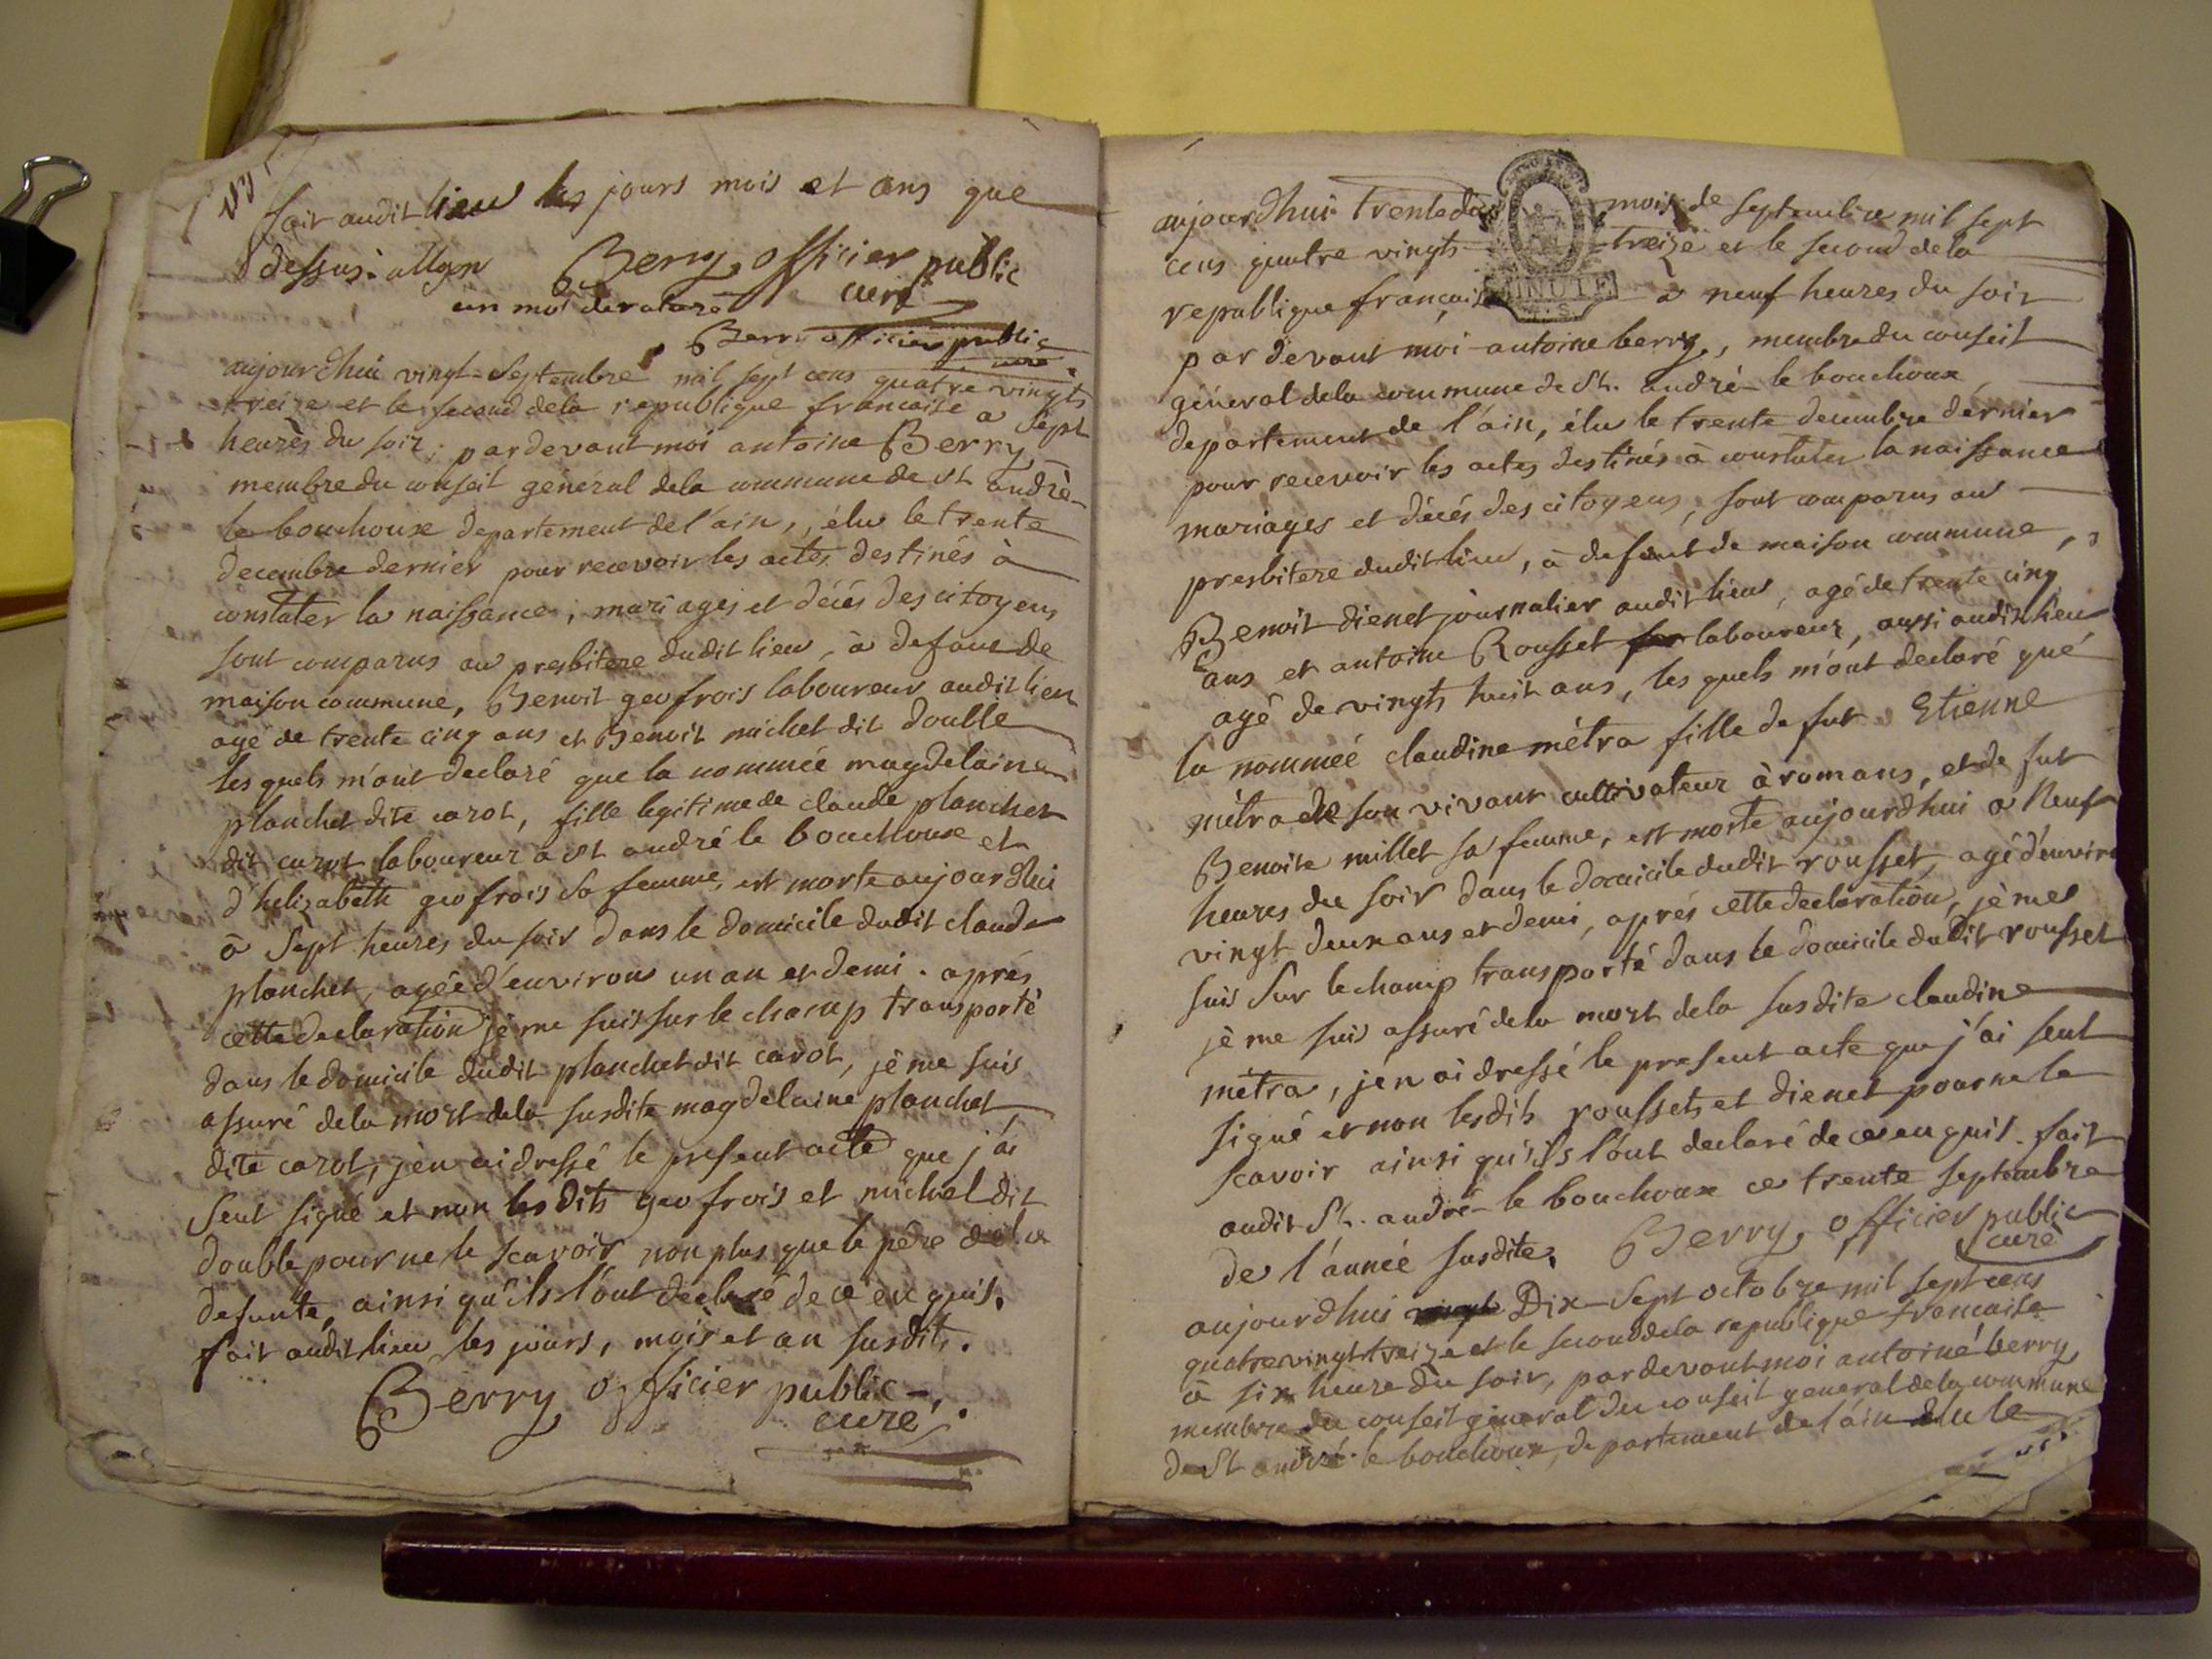 fait audit lieu les jours mois et ans que
dessus. allyon Berry officier public
un mot de raturé curé
Berry officier public
curé
aujourdhui vingt-Septembre mil sept cens quatre vingts
treize et le second dela republique francaise a Sept
heures du soir, pardevant moi antoine Berry
membre du conseil général dela commune de st andré-
le bouchoux departement de l'ain, élu le trente
decembre dernier pour recevoir les actes destinés à
constater la naissance, mariages et décés des citoyens
sont comparus au presbitere dudit lieu, à defaut de
maison commune, Benoit geofrois laboureur audit lieu
agé de trente cinq ans et Benoit michel dit double
les quels m'ont declaré que la nommée magdelaine
planchet dite carot, fille legitime de claude planchet
dit carot laboureur a st andré le bouchoux et
d'helizabeth geofrois Sa femme, est morte aujourdhui
à Sept heures du soir dans le domicile dudit claude
planchet, agée d'environ un an et demi. après
cette declaration je me suis sur le champ transporté
dans le domicile dudit planchet dit carot, je me suis
assuré dela mort dela susdite magdelaine planchet
dite carot, j'en ai dressé le present acte que j'ai
Seul signé et non les dits geofrois et michel dit
double pour ne le scavoir non plus que le pere dela
defunte, ainsi qu'ils l'ont declaré de ce enquis.
fait audit lieu les jours, mois et an susdits.
Berry officier public-
curé
aujourdhui trente du mois de septembre mil sept
cens quatre vingts treize et le second dela
republique francaise a neuf heures du soir
MINUTE
par devant moi antoine berry, membre du conseil
géneral dela commune de St. andré-le bouchoux
departement de l'ain, élu le trente decembre dernier
pour recevoir les actes destinés à constater la naissance
mariages et décés des citoyens, sont comparus au
presbitere dudit lieu, à defaut de maison commune,
Benoit dienet journalier audit lieu, agé de trente cinq
ans et antoine Rousset laboureur, aussi audit lieu
agé de vingts huit ans, les quels m'ont declaré que
la nommeé claudine métra fille de fut Etienne
métra de son vivant cultivateur à romans, et de fut
Benoite millet sa femme, est morte aujourd'hui a Neuf
heures du soir dans le domicile dudit rousset, agé d'environ
vingt deux ans et demi, aprés cette declaration, je me
suis Sur le champ transporté dans le domicile dudit rousset
je me suis assuré dela mort dela susdite claudine
métra, j'en ai dressé le present acte que j'ai seul
signé et non lesdits roussets et dienet pour ne le
scavoir ainsi qu'ils l'ont declaré de ce enquis. fait
audit St. andré-le bouchoux ce trente septembre
de l'année susdite. Berry officier public
curé
aujourdhui vingt Dix-Sept octobre mil sept cens
quatrevingt treize et le second dela republique francaise
à six heure du soir, pardevant moi antoine berry
membre du conseil géneral du conseil general dela commune
de St andré-le bouchoux, departement de l'ain élu le